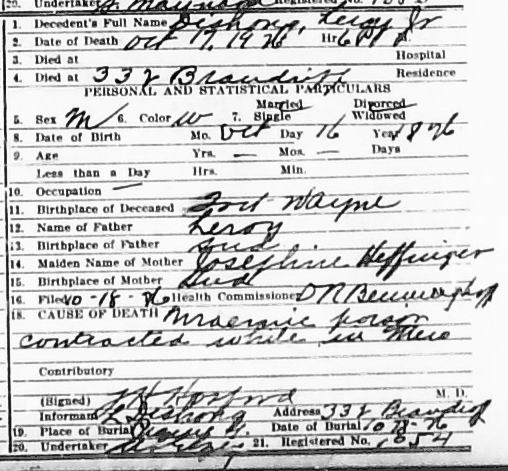 20. Undertaker Registered No.
1. Decedent's Full Name Dishong, Leroy Jr
2. Date of Death Oct 17, 1926 Hr. 6 P M.
3. Died at Hospital
4. Died at 332 Brandriff Residence
PERSONAL AND STATISTICAL PARTICULARS
Married Divorced
5. Sex M 6. Color w 7. Single Widowed
8. Date of Birth Mo. Oct Day 16 Year
9. Age Yrs. — Mos. — Days
Less than a Day Hrs. Min.
10. Occupation —
11. Birthplace of Deceased Fort Wayne
12. Name of Father Leroy
13. Birthplace of Father Ind
14. Maiden Name of Mother Josephine Heffinger
15. Birthplace of Mother Ind
16. Filed 10-18-26 Health Commissioner
18. CAUSE OF DEATH
contracted while in
Contributory
(Signed) M. D.
Informant L Dishong Address 332 Brandriff
19. Place of Burial Date of Burial
20. Undertaker 21. Registered No. 1054